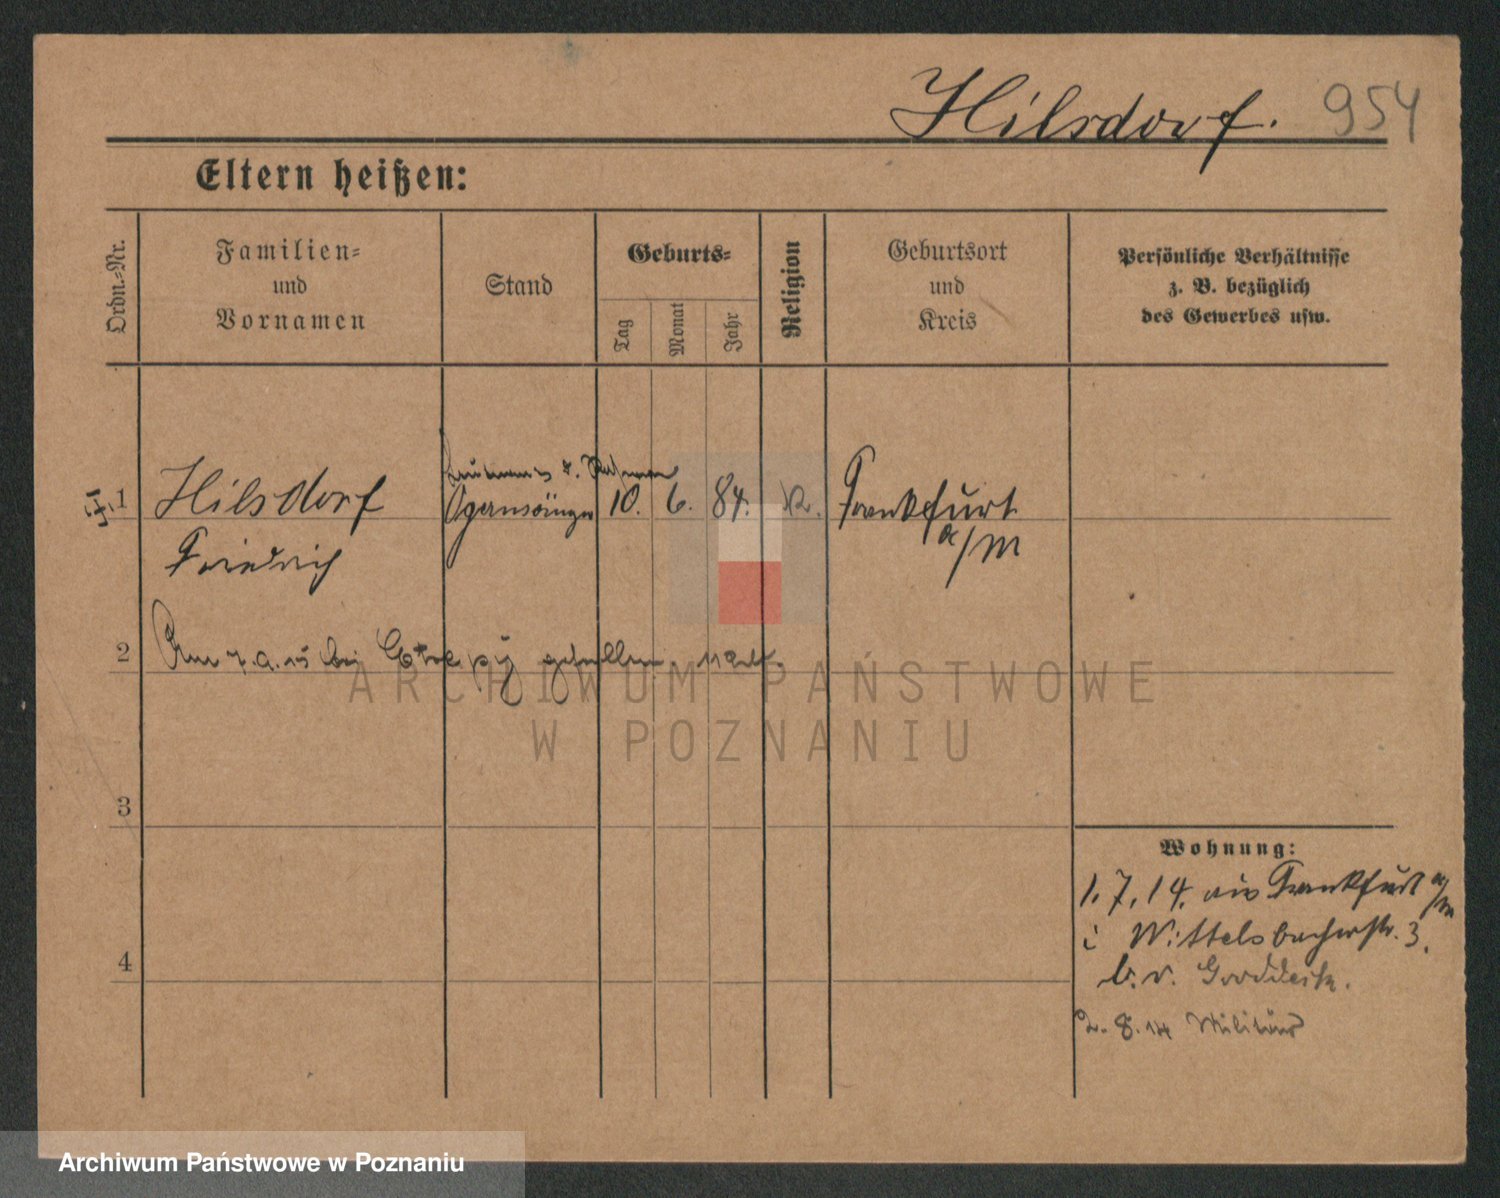 Hilsdorf. 954
Eltern heißen:
Ordn.=Nr.
Familien=
und
Vornamen
Stand
Geburts=
Tag
Monat
Jahr
Religion
Geburtsort
und
Kreis
Persönliche Verhältnisse
z. B. bezüglich
des Gewerbes usw.
1 Hilsdorf Opernsänger 10. 6. 84. K. Frankfurt
a/M
Friedrich
2 Am 7.9.15 bei gefallen
ARCHIWUM PAŃSTWOWE
W POZNANIU
3
Wohnung:
1.7.14. aus Frankfurt a/M
i Wittelsbacherstr. 3.
b. v.
4
2.8.14 Militär
Archiwum Państwowe w Poznaniu